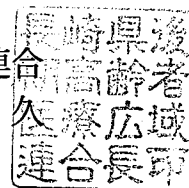 連合
久
長崎県後
期高齢者
医療広域
連合長印